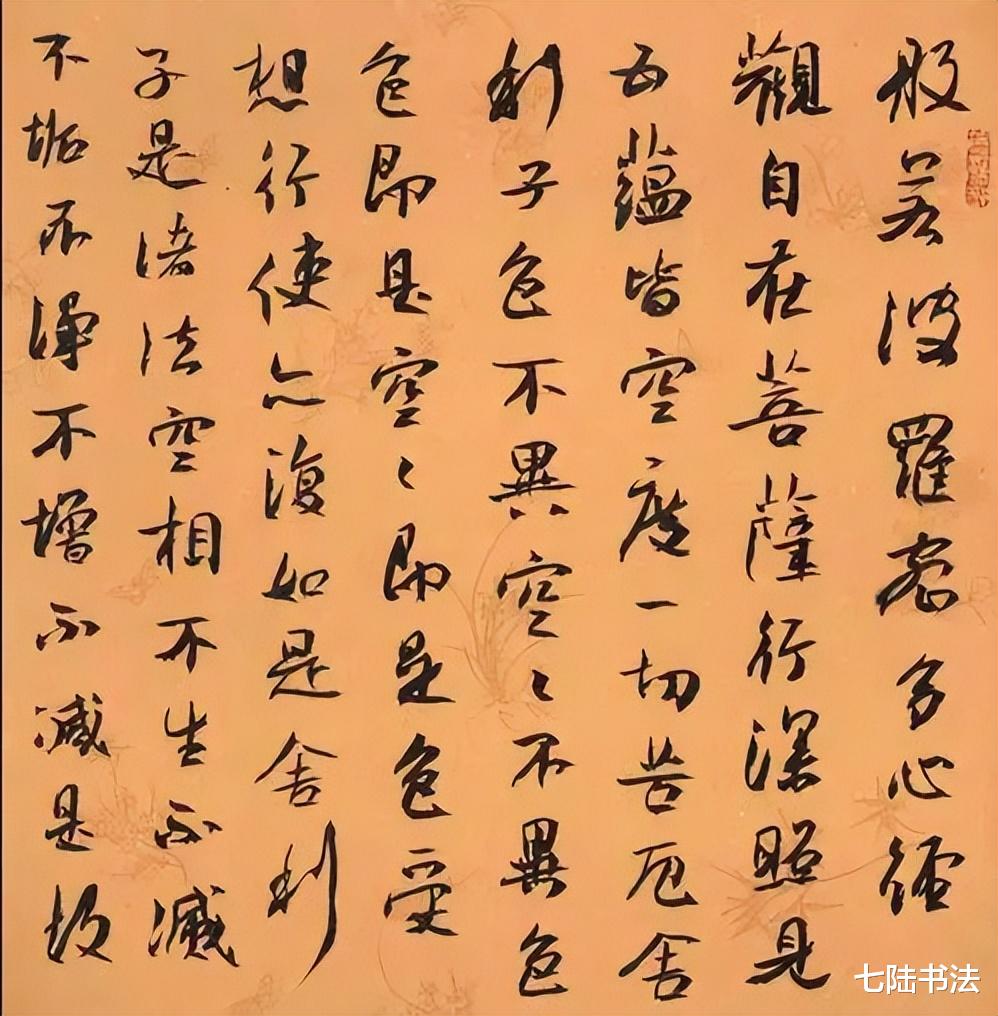 般若波羅蜜多心經
觀自在菩薩行深照見
五蘊皆空度一切苦厄舍
利子色不異空〻不異色
色即是空〻即是色受
想行使亦復如是舍利
子是諸法空相不生不滅
不垢不淨不增不減是故
七陆书法